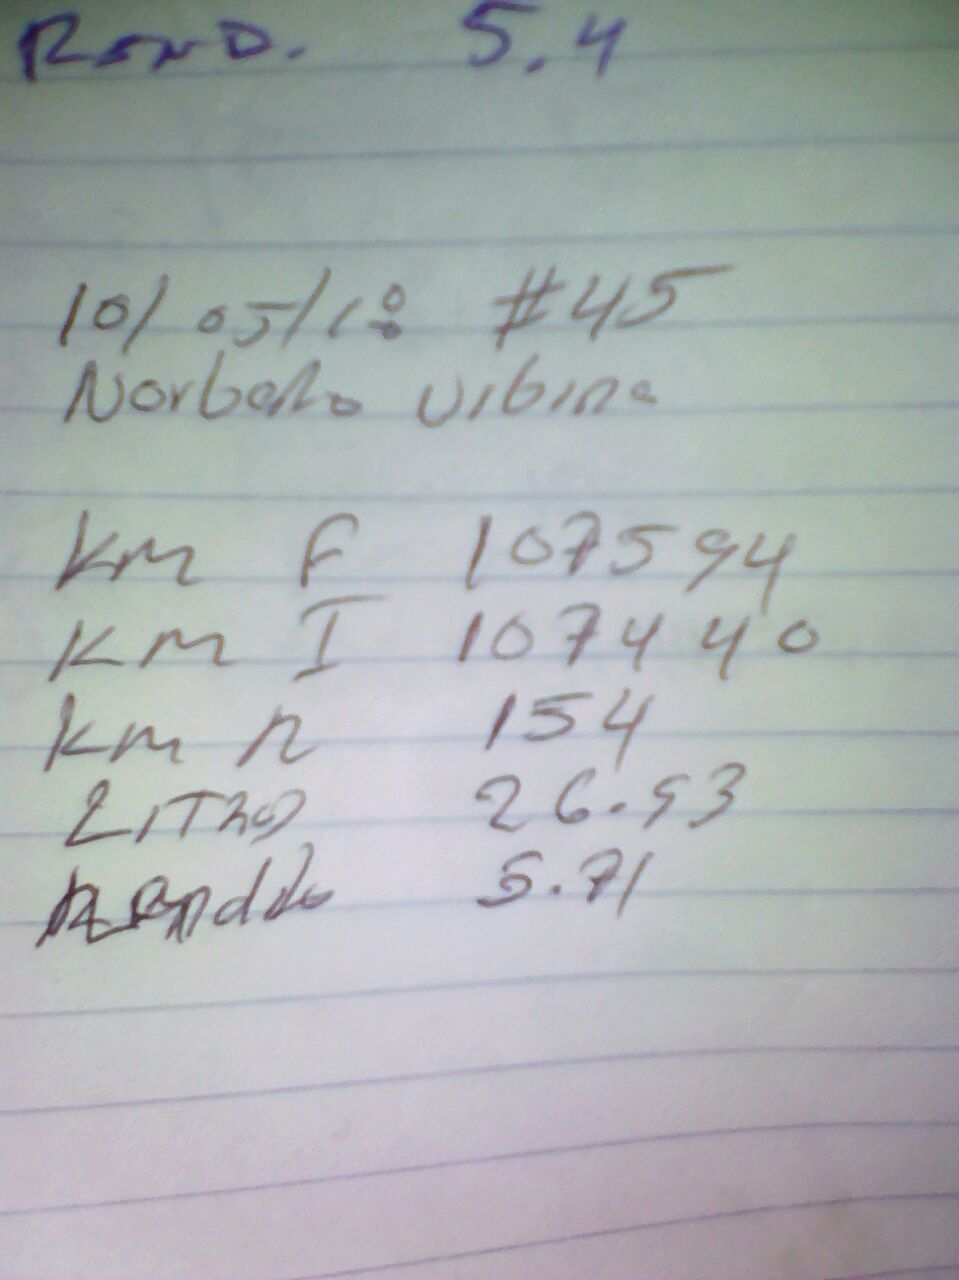 REND. 5.4
10/05/18 #45
Norberto Urbina
Km F 107594
Km I 107440
Km R 154
LITRO 26.93
Renddo 5.71